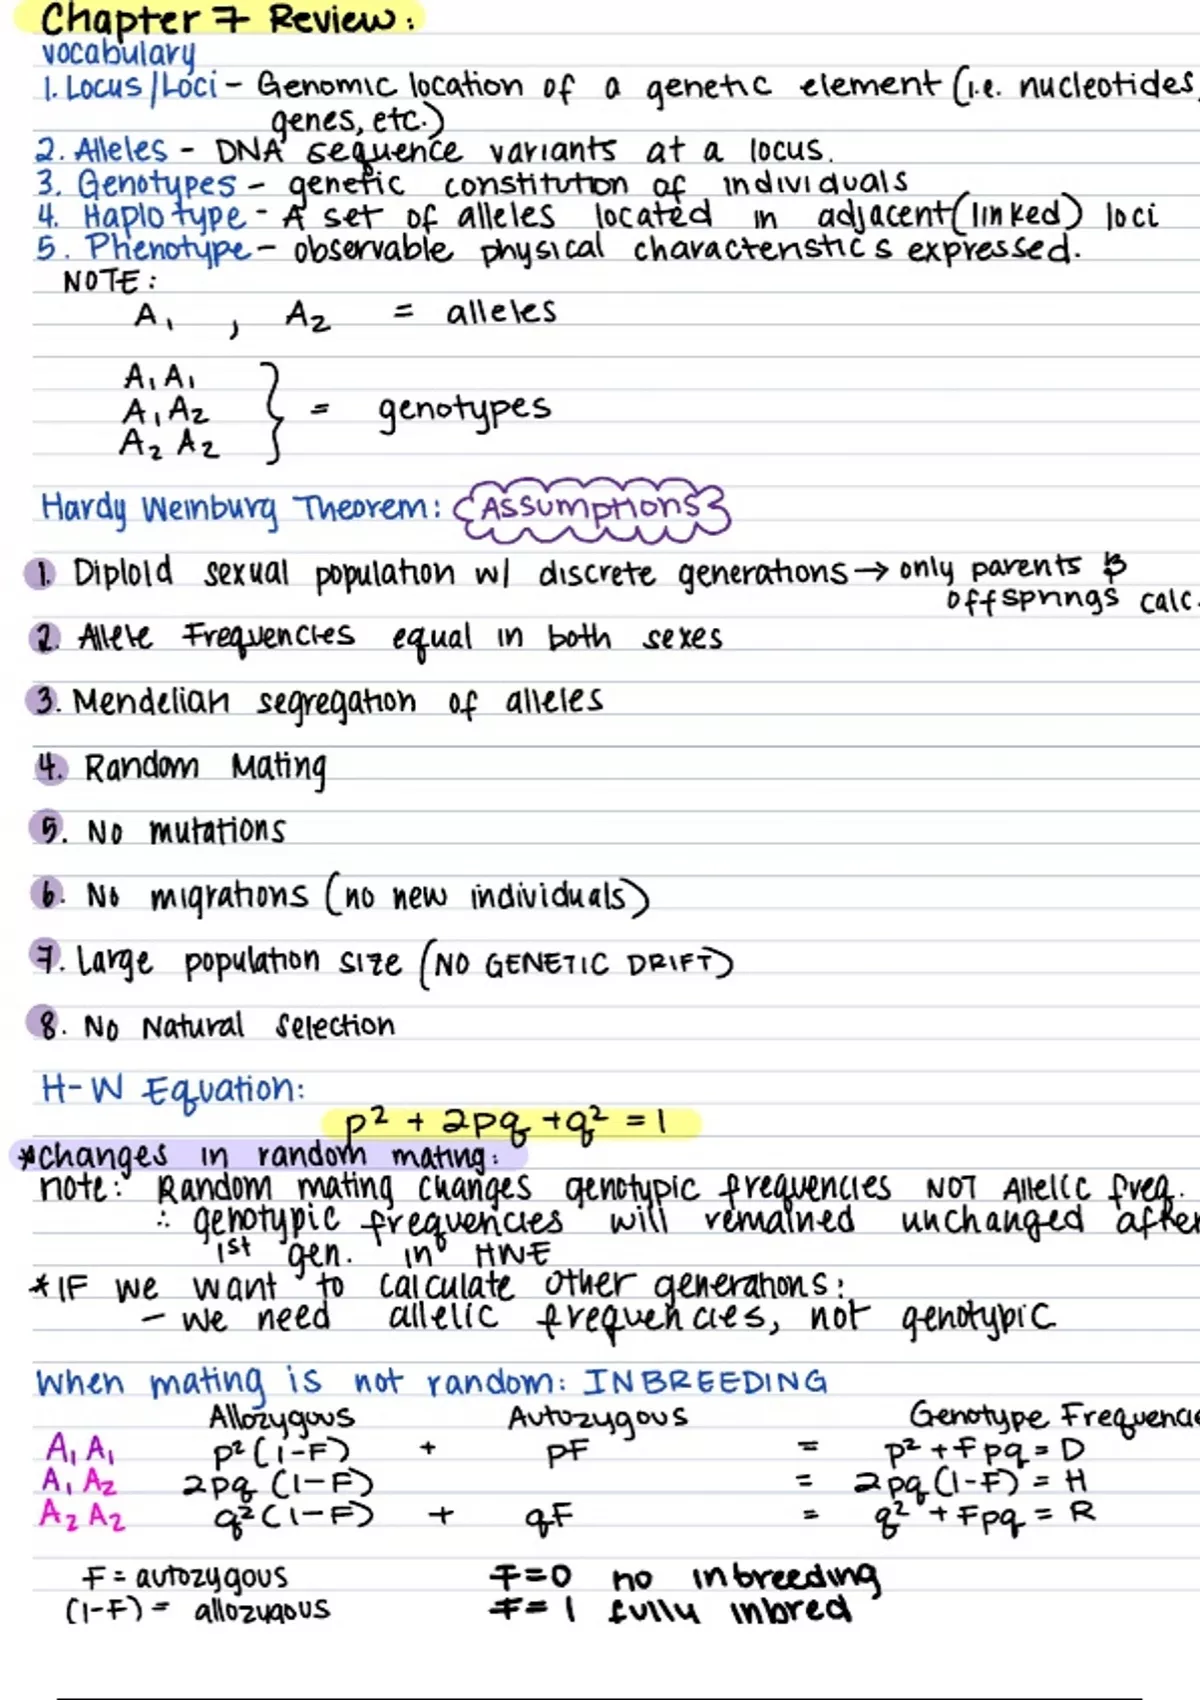 Chapter 7 Review:
vocabulary
1. Locus/Loci - Genomic location of a genetic element (i.e. nucleotides,
genes, etc.)
2. Alleles - DNA sequence variants at a locus.
3. Genotypes - genetic constitution of individuals
4. Haplotype - A set of alleles located in adjacent (linked) loci
5. Phenotype - observable physical characteristics expressed.
NOTE:
A₁ , A₂ = alleles
A₁ A₁
A₁ A₂ } = genotypes
A₂ A₂
Hardy Weinburg Theorem: Assumptions
1. Diploid sexual population w/ discrete generations → only parents &
offsprings calc.
2. Allele Frequencies equal in both sexes
3. Mendelian segregation of alleles
4. Random Mating
5. No mutations
6. No migrations (no new individuals)
7. Large population size (NO GENETIC DRIFT)
8. No Natural Selection
H-W Equation:
p² + 2pq + q² = 1
*changes in random mating:
note: Random mating changes genotypic frequencies NOT Allelic freq.
∴ genotypic frequencies will remained unchanged after
1st gen. in HWE
* IF we want to calculate other generations:
- we need allelic frequencies, not genotypic
When mating is not random: INBREEDING
Allozygous Autozygous Genotype Frequencie
A₁ A₁ p² (1-F) + pF = p² + Fpq = D
A₁ A₂ 2pq (1-F) = 2pq (1-F) = H
A₂ A₂ q² (1-F) + qF = q² + Fpq = R
F = autozygous F=0 no inbreeding
(1-F) = allozygous F=1 fully inbred